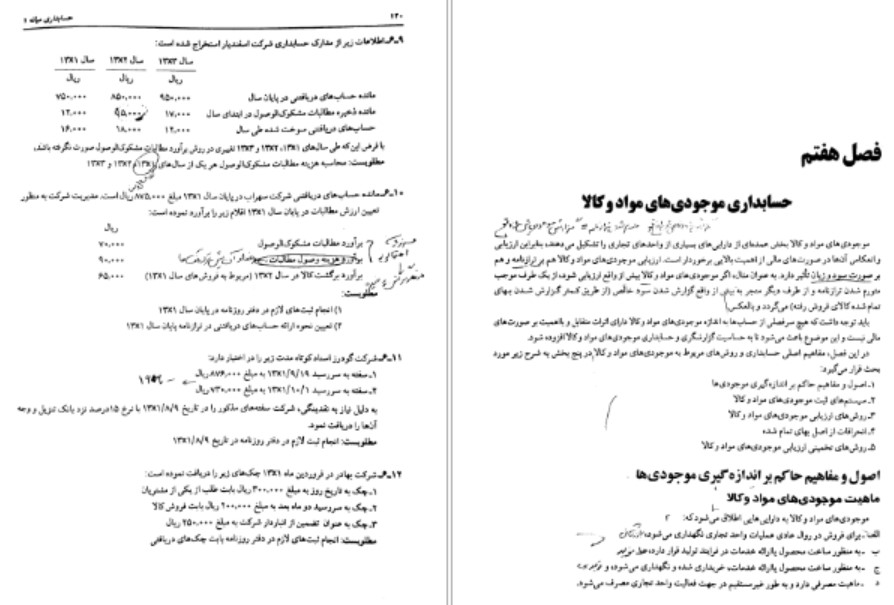 ۱۴۰
حسابداری میانه ۱
۹ـ۶ـ اطلاعات زیر از مدارک حسابداری شرکت اسفندیار استخراج شده است:
سال ۱۳x۳ سال ۱۳x۲ سال ۱۳x۱
ریال ریال ریال
مانده حساب‌های دریافتنی در پایان سال ۹۵۰,۰۰۰ ۸۵۰,۰۰۰ ۷۵۰,۰۰۰
مانده ذخیره مطالبات مشکوک‌الوصول در ابتدای سال ۱۷,۰۰۰ ۱۵,۰۰۰ ۱۲,۰۰۰
حساب‌های دریافتنی سوخت شده طی سال ۱۴,۰۰۰ ۱۸,۰۰۰ ۱۶,۰۰۰
با فرض این‌که طی سال‌های ۱۳x۱، ۱۳x۲ و ۱۳x۳ تغییری در روش برآورد مطالبات مشکوک‌الوصول صورت نگرفته باشد،
مطلوبست: محاسبه هزینه مطالبات مشکوک‌الوصول هر یک از سال‌های ۱۳x۱، ۱۳x۲ و ۱۳x۳
۱۰ـ۶ـ مانده حساب‌های دریافتنی شرکت سهراب در پایان سال ۱۳x۱ مبلغ ۸۷۵,۰۰۰ ریال است. مدیریت شرکت به منظور
تعیین ارزش مطالبات در پایان سال ۱۳x۱ اقلام زیر را برآورد نموده است:
ریال
برآورد مطالبات مشکوک‌الوصول ۷۰,۰۰۰
برآورد هزینه وصول مطالبات ۹۰,۰۰۰
برآورد برگشت کالا در سال ۱۳x۲ (مربوط به فروش‌های سال ۱۳x۱) ۶۵,۰۰۰
مطلوبست:
۱) انجام ثبت‌های لازم در دفتر روزنامه در پایان سال ۱۳x۱
۲) تعیین نحوه ارائه حساب‌های دریافتنی در ترازنامه پایان سال ۱۳x۱
۱۱ـ۶ـ شرکت گودرز اسناد کوتاه مدت زیر را در اختیار دارد:
۱ـ سفته به سررسید ۱۳x۱/۹/۱۹ به مبلغ ۸۷۶,۰۰۰ ریال
۲ـ سفته به سررسید ۱۳x۱/۱۰/۱ به مبلغ ۷۳۰,۰۰۰ ریال
به دلیل نیاز به نقدینگی، شرکت سفته‌های مذکور را در تاریخ ۱۳x۱/۸/۹ با نرخ ۱۵درصد نزد بانک تنزیل و وجه
آن‌ها را دریافت نمود.
مطلوبست: انجام ثبت لازم در دفتر روزنامه در تاریخ ۱۳x۱/۸/۹
۱۲ـ۶ـ شرکت بهادر در فروردین ماه ۱۳x۱ چک‌های زیر را دریافت نموده است:
۱ـ چک به تاریخ روز به مبلغ ۳۰۰,۰۰۰ ریال بابت طلب از یکی از مشتریان
۲ـ چک به سررسید دو ماه بعد به مبلغ ۲۰۰,۰۰۰ ریال بابت فروش کالا
۳ـ چک به عنوان تضمین از انباردار شرکت به مبلغ ۲۵۰,۰۰۰ ریال
مطلوبست: انجام ثبت‌های لازم در دفتر روزنامه بابت چک‌های دریافتی
فصل هفتم
حسابداری موجودی‌های مواد و کالا
موجودی‌های مواد و کالا بخش عمده‌ای از دارایی‌های بسیاری از واحدهای تجاری را تشکیل می‌دهند، بنابراین ارزیابی
و انعکاس آن‌ها در صورت‌های مالی از اهمیت بالایی برخوردار است. ارزیابی موجودی‌های مواد و کالا هم بر ترازنامه و هم
بر صورت سود و زیان تأثیر دارد. به عنوان مثال، اگر موجودی‌های مواد و کالا بیش از واقع ارزیابی شوند، از یک طرف موجب
متورم شدن ترازنامه و از طرف دیگر منجر به بیش از واقع گزارش شدن سود خالص (از طریق کمتر گزارش شدن بهای
تمام شده کالای فروش رفته) می‌گردد و بالعکس.
باید توجه داشت که هیچ سرفصلی از حساب‌ها به اندازه موجودی‌های مواد و کالا دارای اثرات متقابل و بااهمیت بر صورت‌های
مالی نیست و این موضوع باعث می‌شود تا به حساسیت گزارشگری و حسابداری موجودی‌های مواد و کالا افزوده شود.
در این فصل، مفاهیم اصلی حسابداری و روش‌های مربوط به موجودی‌های مواد و کالا در پنج بخش به شرح زیر مورد
بحث قرار می‌گیرد:
۱ـ اصول و مفاهیم حاکم بر اندازه‌گیری موجودی‌ها
۲ـ سیستم‌های ثبت موجودی‌های مواد و کالا
۳ـ روش‌های ارزیابی موجودی‌های مواد و کالا
۴ـ انحرافات از اصل بهای تمام شده
۵ـ روش‌های تخمینی ارزیابی موجودی‌های مواد و کالا
اصول و مفاهیم حاکم بر اندازه‌گیری موجودی‌ها
ماهیت موجودی‌های مواد و کالا
موجودی‌های مواد و کالا به دارایی‌هایی اطلاق می‌شود که:
الف ـ برای فروش در روال عادی عملیات واحد تجاری نگهداری می‌شود،
ب ـ به منظور ساخت محصول یا ارائه خدمات در فرایند تولید قرار دارد،
ج ـ به منظور ساخت محصول یا ارائه خدمات، خریداری شده و نگهداری می‌شود، و
د ـ ماهیت مصرفی دارد و به طور غیرمستقیم در جهت فعالیت واحد تجاری مصرف می‌شود.